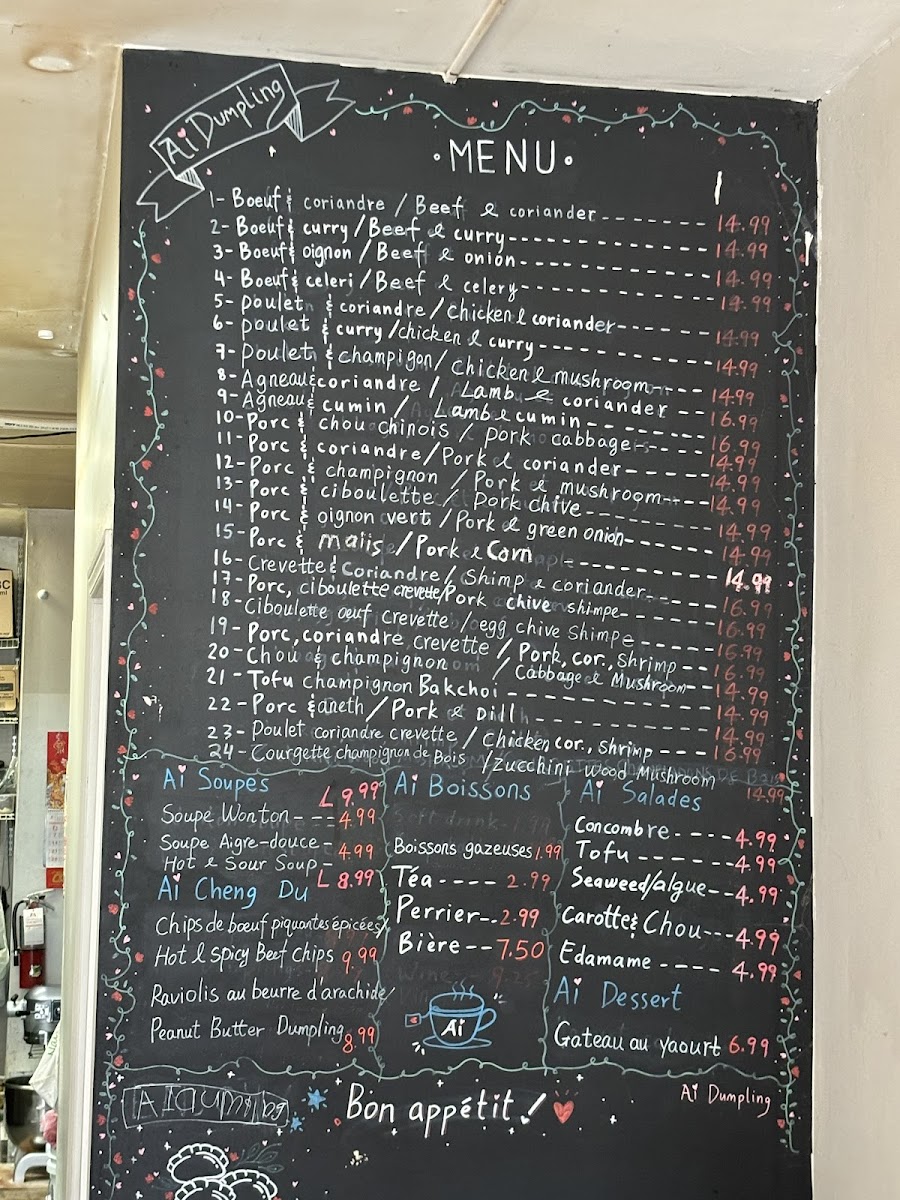 Ai Dumpling
• MENU •
1- Boeuf & coriandre / Beef & coriander ------ 14.99
2- Boeuf & curry / Beef & curry ------ 14.99
3- Boeuf & oignon / Beef & onion ------ 14.99
4- Boeuf & celeri / Beef & celery ------ 14.99
5- poulet & coriandre / chicken & coriander ------ 14.99
6- poulet & curry / chicken & curry ------ 14.99
7- Poulet & champigon / chicken & mushroom ---- 14.99
8- Agneau & coriandre / Lamb & coriander -- 16.99
9- Agneau & cumin / Lamb & cumin ------ 16.99
10- Porc & chou chinois / pork cabbage ---- 14.99
11- Porc & coriandre / Pork & coriander ---- 14.99
12- Porc & champignon / Pork & mushroom ---- 14.99
13- Porc & ciboulette / Pork chive ------ 14.99
14- Porc & oignon vert / Pork & green onion ------ 14.99
15- Porc & maiis / Pork & Corn ------ 14.99
16- Crevette & Coriandre / Shimp & coriander ---- 16.99
17- Porc, ciboulette crevette / Pork chive shimpe ---- 16.99
18- Ciboulette œuf crevette / egg chive Shimpe -- 16.99
19- Porc, coriandre, crevette / Pork, cor., shrimp -- 16.99
20- Chou & champignon / Cabbage & Mushroom -- 14.99
21- Tofu champignon Bakchoi ------ 14.99
22- Porc & aneth / Pork & Dill ------ 14.99
23- Poulet coriandre crevette / Chicken cor., shrimp ---- 16.99
24- Courgette champignon de Bois / Zucchini wood Mushroom 14.99
Ai Soupes
L 9.99
Soupe Wonton --- 4.99
Soupe Aigre-douce -- 4.99
Hot & Sour Soup -
L 8.99
Ai Cheng Du
Chips de bœuf piquantes épicées /
Hot & spicy Beef Chips 9.99
Raviolis au beurre d'arachide /
Peanut Butter Dumpling 8.99
Ai Boissons
Boissons gazeuses 1.99
Téa ---- 2.99
Perrier -- 2.99
Bière -- 7.50
Ai
Ai Salades
Concombre ---- 4.99
Tofu ------ 4.99
Seaweed/algue -- 4.99
Carotte & Chou --- 4.99
Edamame ----- 4.99
Ai Dessert
Gateau au yaourt 6.99
Bon appétit !
Ai Dumpling